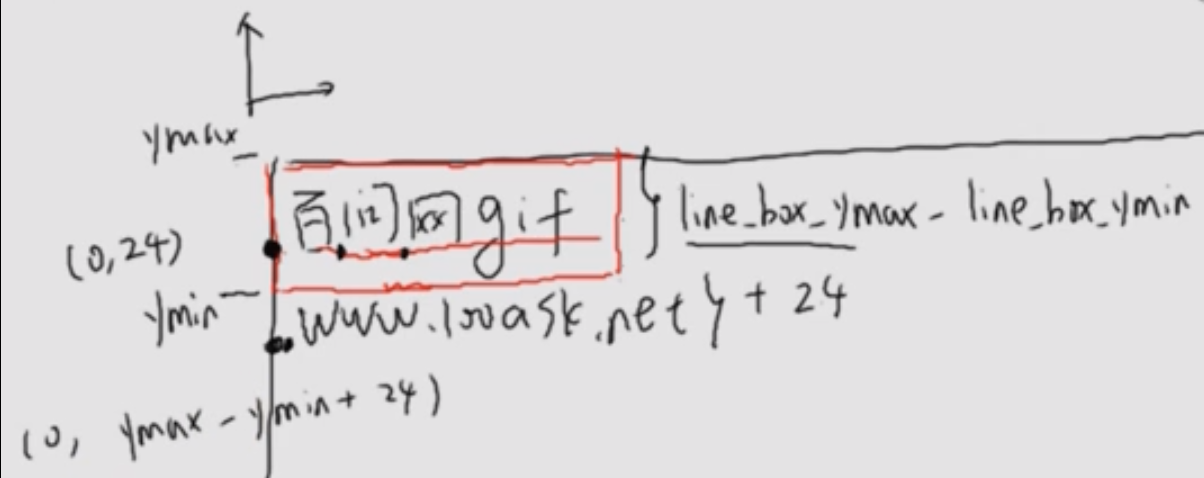 ymax
百问网gif
line_box_ymax - line_box_ymin
(0,24)
ymin
www.100ask.net y + 24
(0, ymax - ymin + 24)